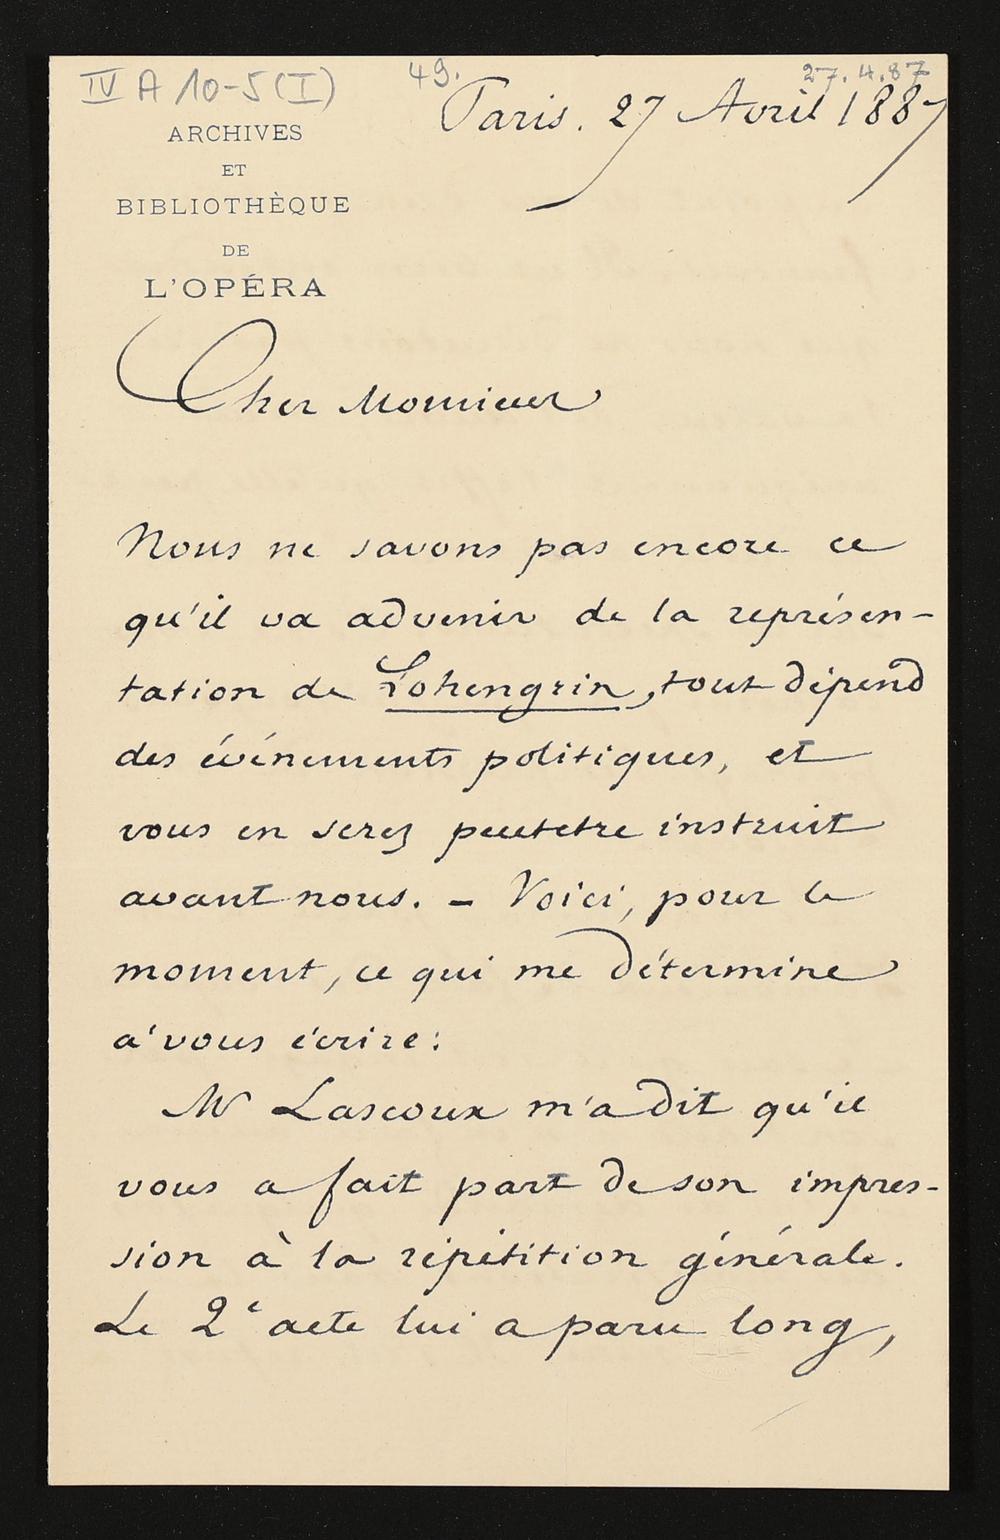 IV A 10-5 (I)
49.
27.4.87
Paris. 27 Avril 1887
ARCHIVES
ET
BIBLIOTHÈQUE
DE
L'OPÉRA
Cher Monsieur
Nous ne savons pas encore ce
qu'il va advenir de la représen-
tation de Lohengrin, tout dépend
des événements politiques, et
vous en serez peutetre instruit
avant nous. – Voici, pour le
moment, ce qui me détermine
à vous écrire:
Mr Lascoux m'a dit qu'il
vous a fait part de son impres-
sion à la répétition générale.
Le 2e acte lui a paru long,